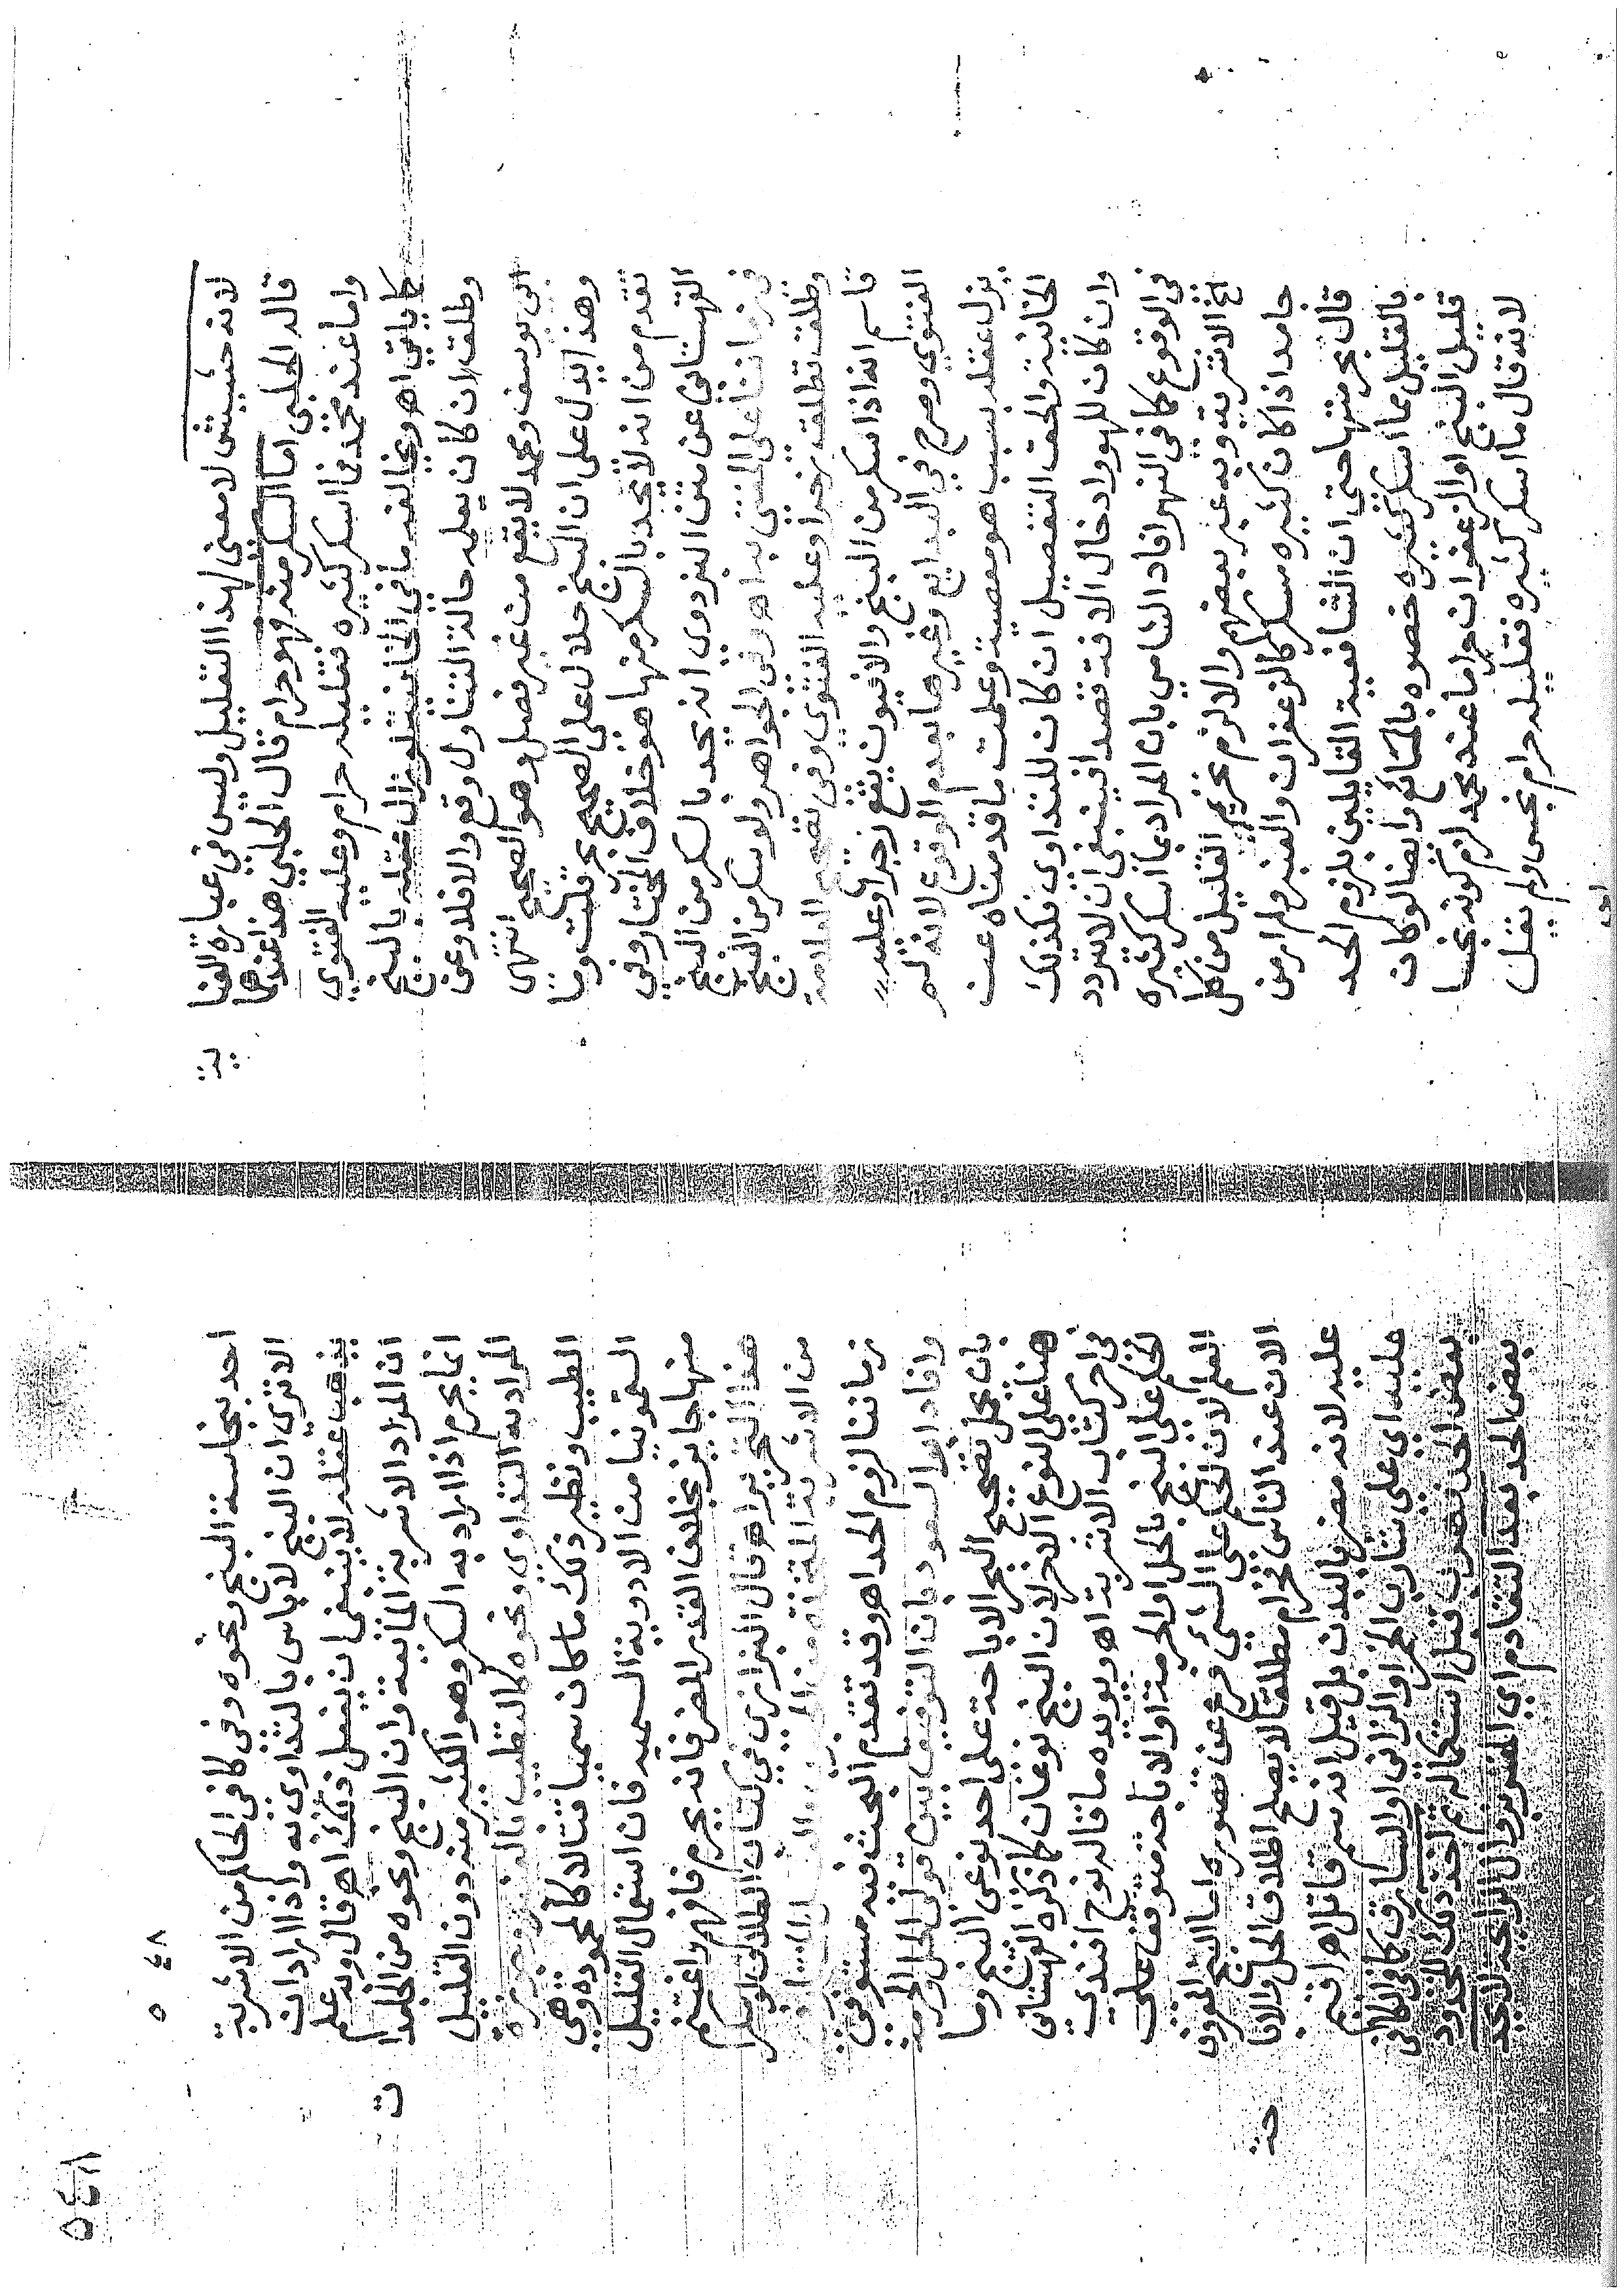 لانه حشيش لا معني لهذا التعليل وليس في عبارة الغنا
ية
قاله الحلبي اما السكر منه فهو حرام قال الحلبي هذا عندهما
واما عند محمد فما اسكر كثيره فقليله حرام وعليه الفتوي
كما ياتي اه ويخالفه ما في الخانية لو زال عقله بالبنج
وطلق ان كان يعلم حالة التناول وقع والا فلا وعن
ابي يوسف ومحمد لا يقع من غير فصل وهو الصحيح انتهى
وهذا يدل على ان البنج حلال على الصحيح بحر قلت وما
تقدم من انه لا يحد بالسكر منها هو خلاف المختار وفي
القهستاني عن متن البزدوي انه يحد بالسكر من البنج
في زماننا على المفتى به اه وفي الجواهر ولو سكر من البنج
وطلق تطلق زجرا وعليه الفتوى وفي تصحيح العلامة
قاسم انه اذا سكر من البنج والافيون يقع زجرا وعليه
الفتوي وصرح في البدايع وغيرها بعدم الوقوع لانه لم
يزل عقله بسبب هو معصية وعلمت ما قدمناه عن
الخانية والحق التفصيل ان كان للتداوى فكذلك
وان كان للهو وادخال الافة قصدا فينبغي ان لا يتردد
في الوقوع كما في النهر افاد الشامي بان المراد بما اسكر كثيره
الخ الاشربة وبه عبر بعضهم والا لزم تحريم القليل من كل
جامد اذا كان كثيره مسكرا كالزعفران والعنبر ولم ار من
قال بحرمتها حتى ان الشافعية القايلين بلزوم الحد
بالقليل مما اسكر كثيره خصوه بالمائع وايضا لو كان
قليل البنج او الزعفران حراما عند محمد لزم كونه نجسا
لانه قال ما اسكر كثيره فقليله حرام نجس ولم يقل
احد
٥٤٨
٥٤٨
احد بنجاسة البنج ونحوه وفي كافي الحاكم من الاشربة
الا تري ان البنج لا باس بالتداوى به واذا اراد ان
يذهب عقله لا ينبغي ان يفعل ذلك اه قال وبه علم
ان المراد الاشربة المائعة وان البنج ونحوه من الجامدا
ت
انما يحرم اذا اراد به السكر وهو الكثير منه دون القليل
المراد به التداوي ونحوه كالتطيب بالعنبر وجوزة
الطيب ونظير ذلك ما كان سميا قتالا كالمحمودة وهي
السقمونيا من الادوية السمية فان استعمال القليل
منها جايز بخلاف القدر المضر فانه يحرم فافهم واغتنم
هذا التحرير اه قال البزازي في كتاب الطلاق لو سكر
من الاشربة المتخذة من
زماننا لزوم الحد اه وقد تقدم البحث فيه مستوفى
وافاد ابو السعود بان التوفيق بين قولي الحل والحرمة
بان يحمل تصحيح البحر الاباحة على احد نوعي البنج وما
هنا على النوع الاخر لان البنج نوعان كما ذكره القهستاني
في اخر كتاب الاشربة اه ويويده ما قاله نوح افندي
الحكم على البنج بالحل او الحرمة او الاباحة متوقف على
العلم لان الحكم على الشي فرع عن تصوره واما البنج المعروف
الان عند الناس فحرام مطلقا لا يصلح اطلاق الحل والابا
حة
عليه لانه مضر بالبدن بل قيل انه سم قاتل اه اقيم
عليه اي على شارب الخمر او الزاني او السارق كما في الكافي
بعض الحد فهرب قبل استكماله ثم اخذ ذلك المحدود
بعض الحد بعد التقادم اي المقرر بزوال الريح لا يحد